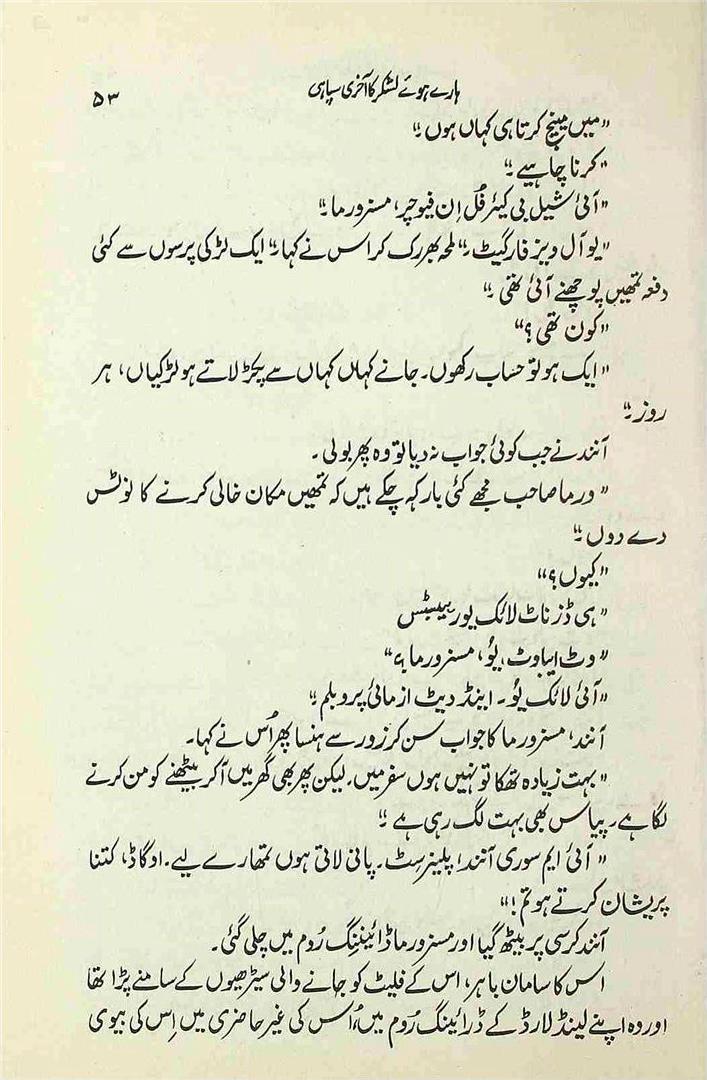 ہارے ہوئے لشکر کا آخری سپاہی ۵۳
"میں مینیج کرتا ہی کہاں ہوں۔"
"کرنا چاہیے۔"
"آئی شیل بی کیئر فُل اِن فیوچر، مسز ورما۔"
"یو آل ویز فارگیٹ۔" لمحہ بھر رک کر اس نے کہا۔ "ایک لڑکی پرسوں سے کئی
دفعہ تمھیں پوچھنے آئی تھی۔"
"کون تھی؟"
"ایک ہو تو حساب رکھوں۔ جانے کہاں کہاں سے پکڑ لاتے ہو لڑکیاں، ہر
روز۔"
آنند نے جب کوئی جواب نہ دیا تو وہ پھر بولی۔
"ورما صاحب مجھے کئی بار کہہ چکے ہیں کہ تمھیں مکان خالی کرنے کا نوٹس
دے دوں۔"
"کیوں؟"
"ہی ڈز ناٹ لائک یور ہیبٹس
"وٹ اباوٹ یُو، مسز ورما؟"
"آئی لائک یُو۔ اینڈ دیٹ از مائی پروبلم۔"
آنند، مسز ورما کا جواب سن کر زور سے ہنسا پھر اُس نے کہا۔
"بہت زیادہ تھکا تو نہیں ہوں سفر میں، لیکن پھر بھی گھر میں آکر بیٹھنے کو من کرنے
لگا ہے۔ پیاس بھی بہت لگ رہی ہے۔"
"آئی ایم سوری آنند! پلیز سِٹ۔ پانی لاتی ہوں تمھارے لیے۔ او گاڈ، کتنا
پریشان کرتے ہو تم!"
آنند کرسی پر بیٹھ گیا اور مسز ورما ڈائیننگ رُوم میں چلی گئی۔
اس کا سامان باہر، اس کے فلیٹ کو جانے والی سیڑھیوں کے سامنے پڑا تھا
اور وہ اپنے لینڈ لارڈ کے ڈرائینگ رُوم میں، اُس کی غیر حاضری میں اِس کی بیوی